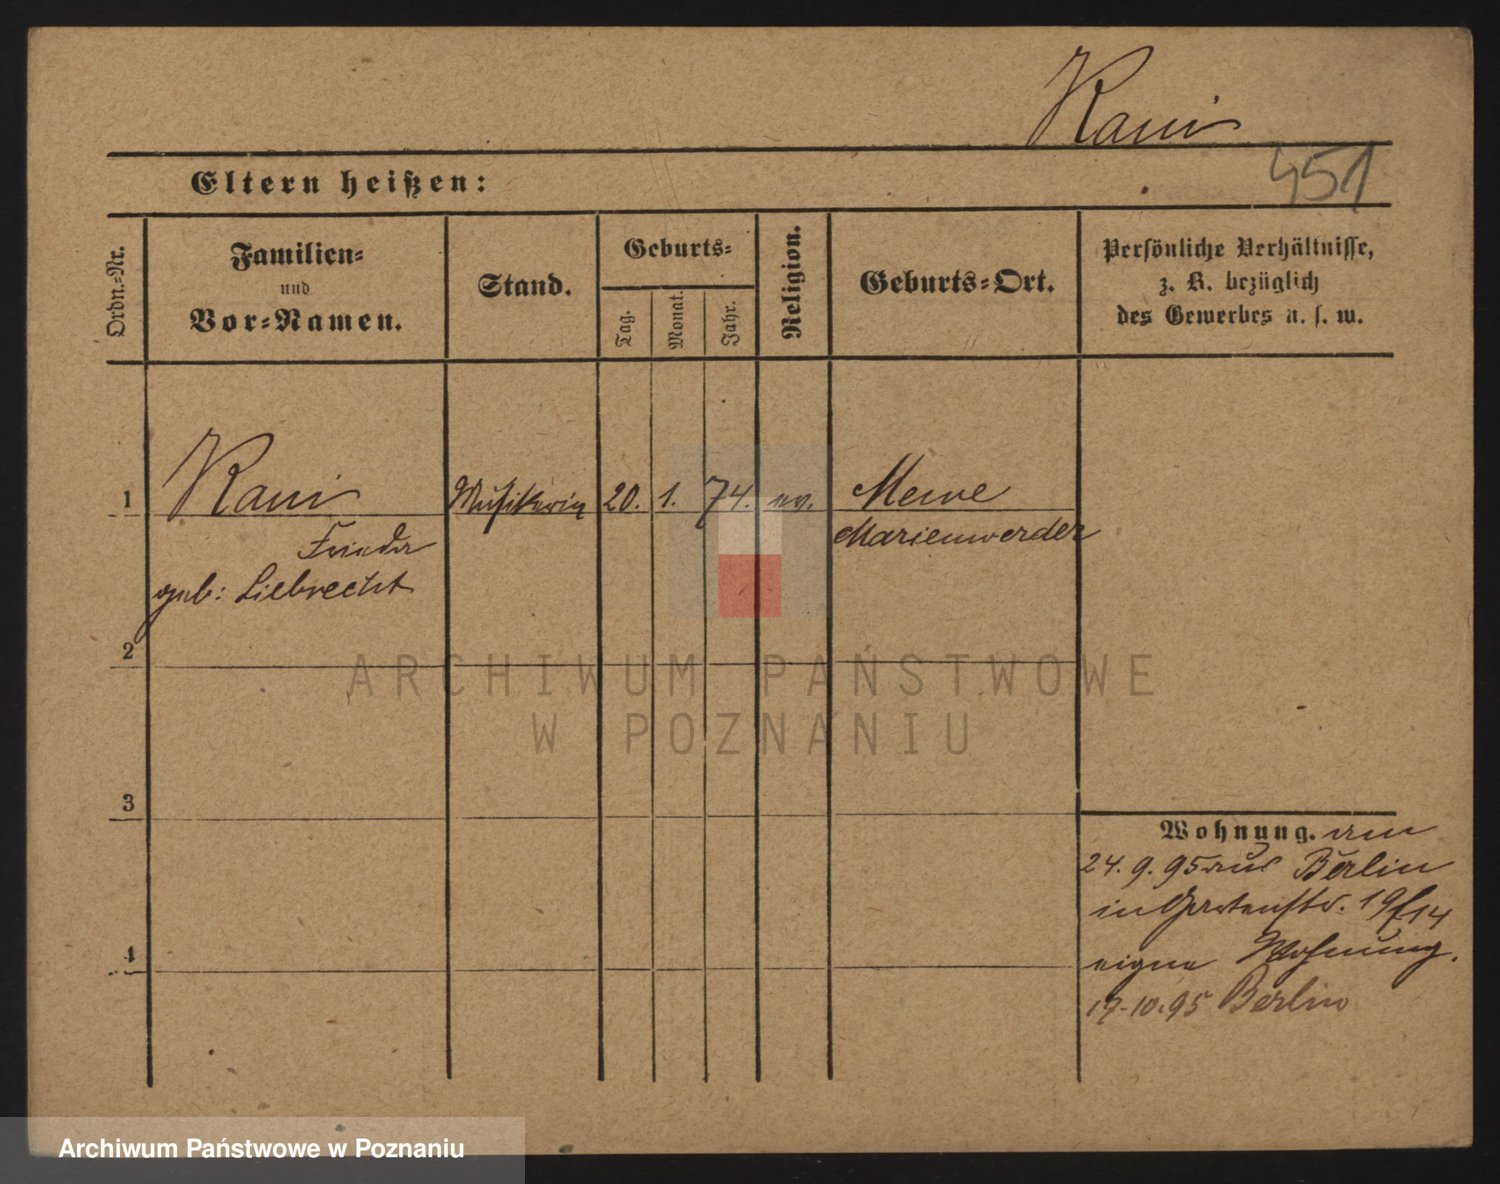 Rani
451
Eltern heißen:
Ordn.-Nr.
Familien-
und
Vor-Namen.
Stand.
Geburts-
Tag.
Monat.
Jahr.
Religion.
Geburts-Ort.
Persönliche Verhältnisse,
z. B. bezüglich
des Gewerbes u. s. w.
1 Rani Musikerin 20. 1. 74. ev. Mewe
Marienwerder
geb: Liebrecht
2
3
4
Wohnung. am
24. 9. 95 aus Berlin
in Gartenstr. 19/14
eigne Wohnung.
17.10.95 Berlin
ARCHIWUM PAŃSTWOWE
W POZNANIU
Archiwum Państwowe w Poznaniu